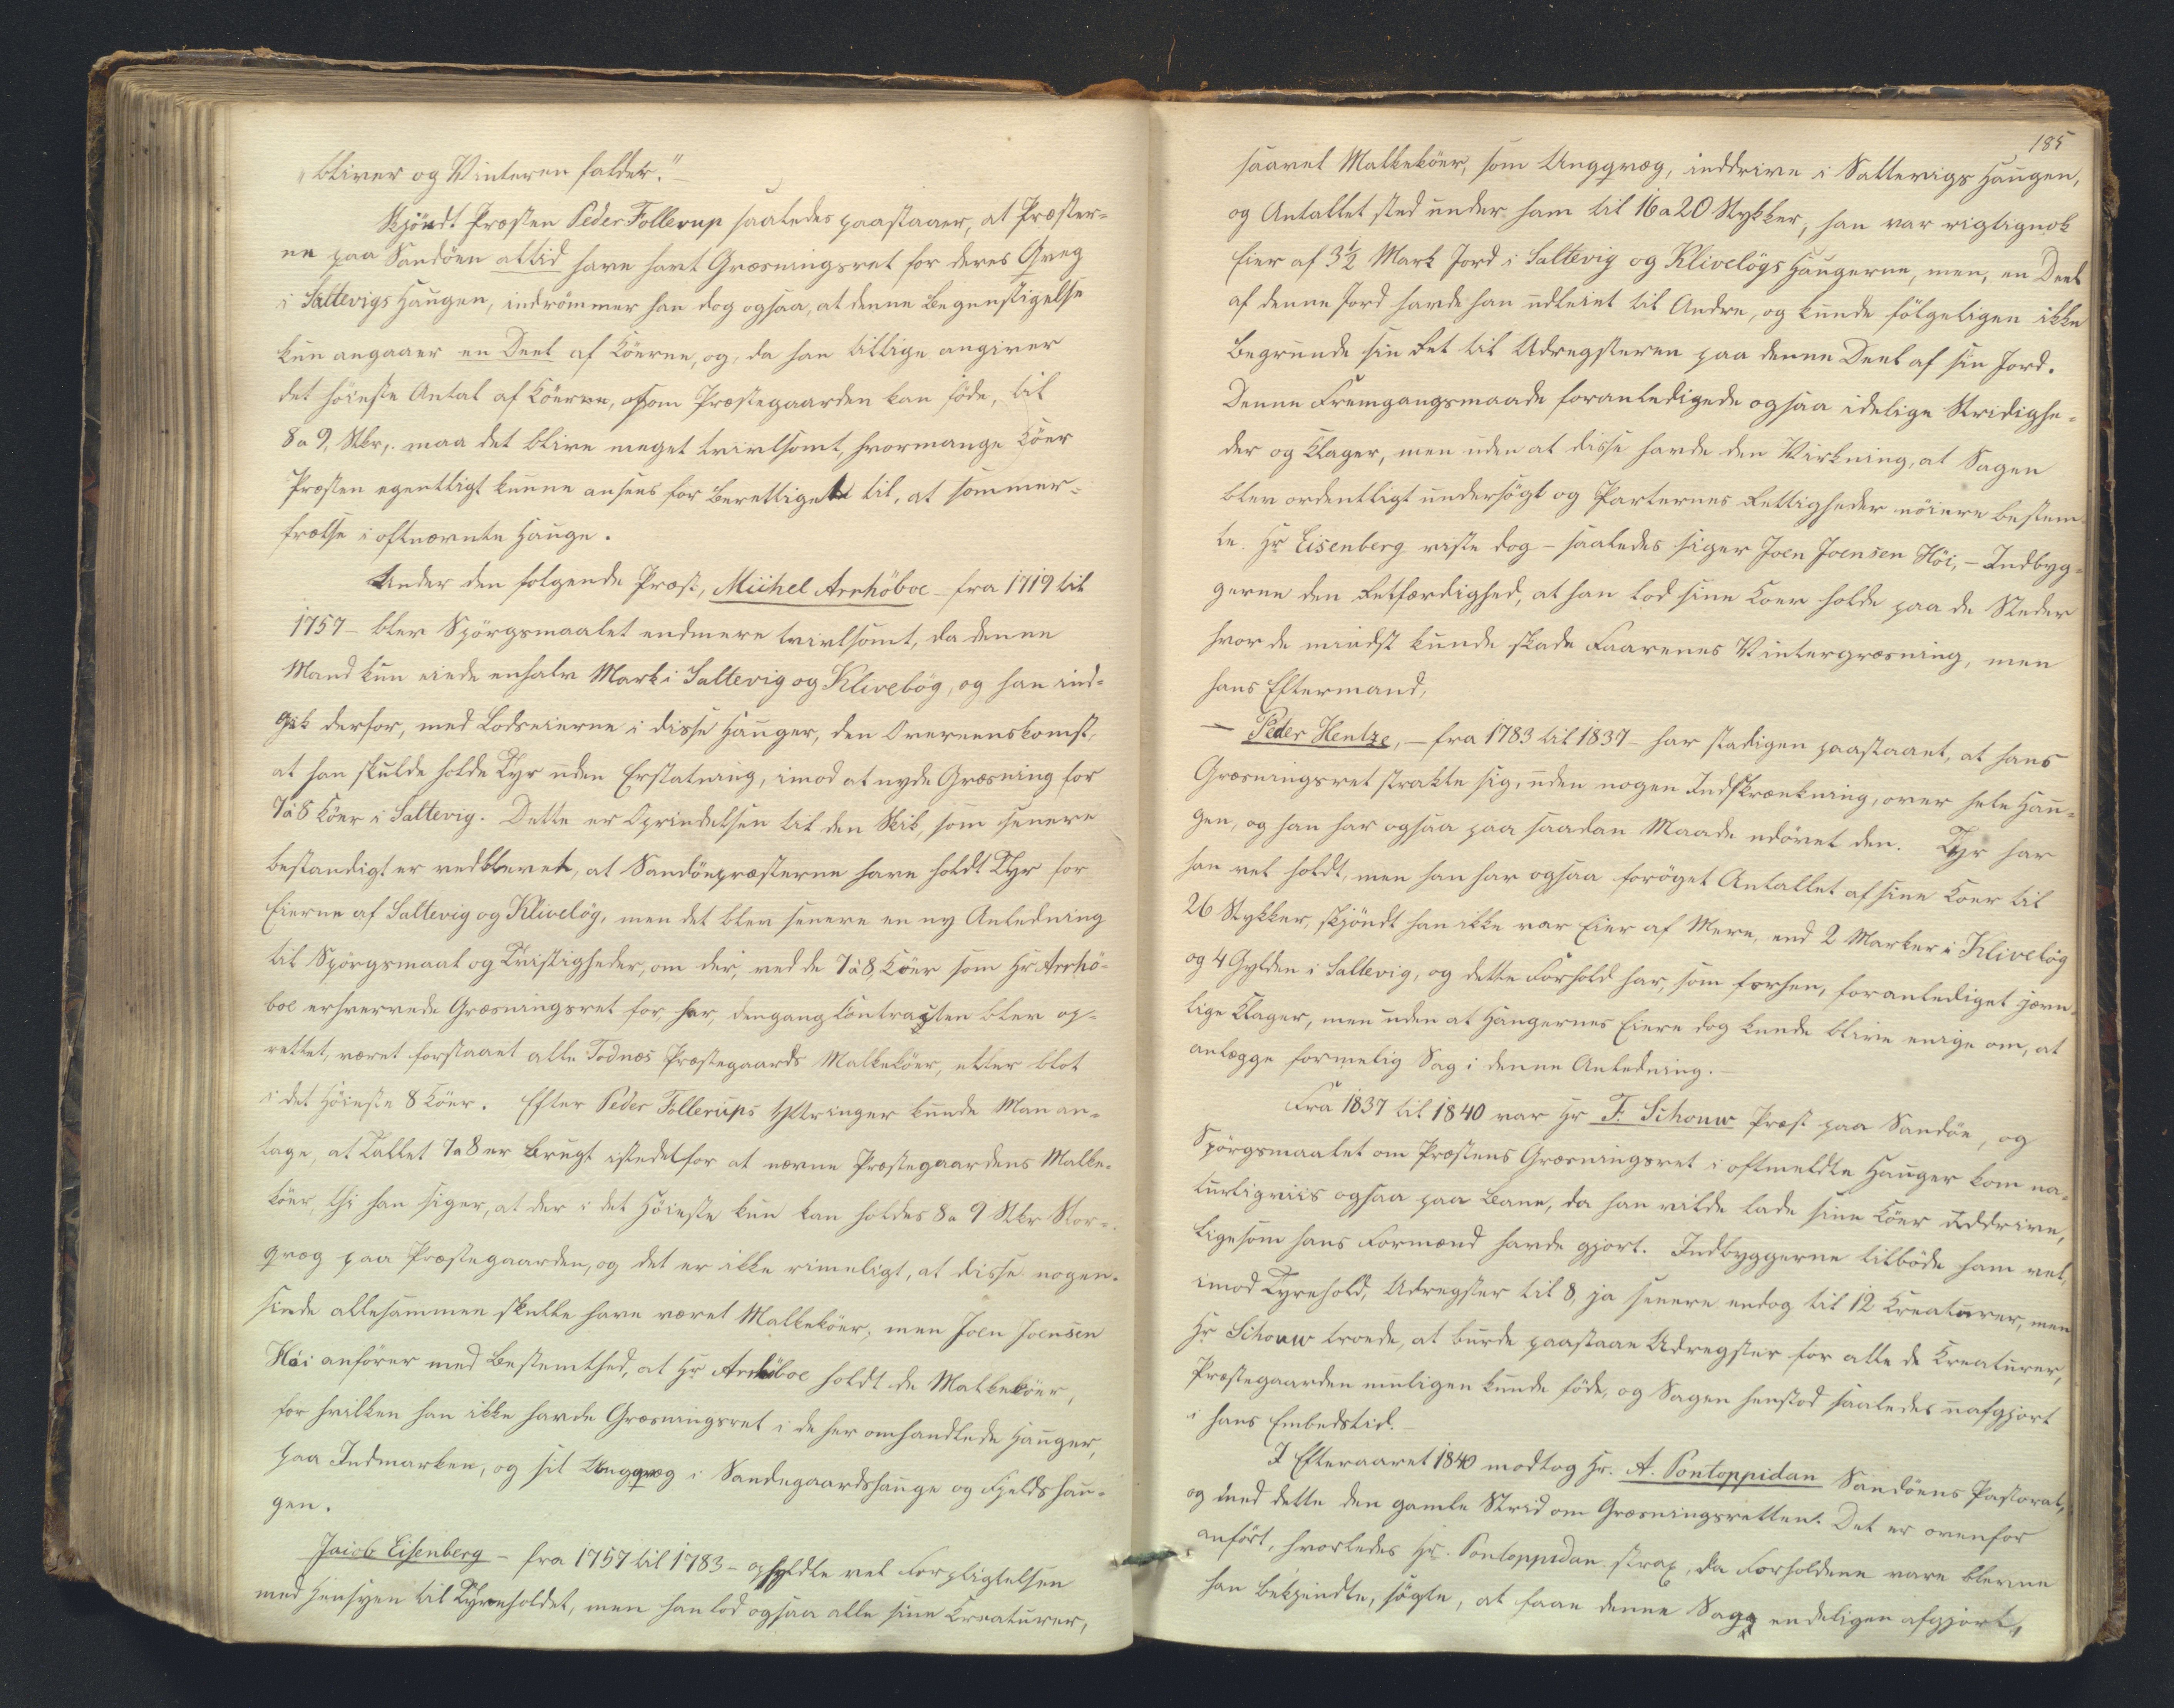 "bliver og Vinteren falder."—
Skjöndt Præsten Peder Follerup saaledes paastaaer, at Præster-
ne paa Sandöen altid have havt Græsningsret for deres Qvæg
i Saltevigs Haugen, indrömmer han dog ogsaa, at denne Begunstigelse
kun angaaer en Deel af Köerne, og, da han tillige angiver
det höieste Antal af Köerne, som Præstegaarden kan föde, til
8 a 9, Stkr,. maa det blive meget tvivlsomt, hvormange Köer
Præsten egentligt kunne ansees for berettiget til, at sommer-
frælse i oftnævnte Hauge.
Under den folgende Præst, Michel Arrhöboe – fra 1719 til
1757 – blev Spörgsmaalet endmere tvivlsomt, da denne
Mand kun eiede enhalv Mark i Saltevig og Klivelög, og han ind-
gik derfor, med Lodseierne i disse Hauger, den Overeenskomst,
at han skulde holde Tyr uden Erstatning, imod at nyde Græsning for
7 à 8 Köer i Saltevig. Dette er Oprindelsen til den Skik, som senere
bestandigt er vedblevet, at Sandöepræsterne have holdt Tyr for
Eierne af Saltevig og Klivelög, men det blev senere en ny Anledning
til Spörgsmaal og Tvistigheder, om der, ved de 7 à 8, Köer som Hr Arrhö-
boe erhvervede Græsningsret for har, dengang Contracten blev op-
rettet, været forstaaet alle Todnæs Præstegaards Malkeköer, eller blot
i det Höieste 8 Köer. Efter Peder Follerups Yttringer kunde Man an-
tage, at Tallet 7 a 8 er brugt istedetfor at nævne Præstegaardens Malke-
köer, thi han siger, at der i det Höieste kun kan holdes 8 a 9 Stkr Stor-
qvæg paa Præstegaarden, og det er ikke rimeligt, at disse nogen-
sinde allesammen skulle have været Malkeköer, men Joen Joensen
Höi anförer med Bestemthed, at Hr Arrhöboe holdt de Malkeköer,
for hvilken han ikke havde Græsningsret i de her omhandlede Hauger,
paa Indmarken, og sit Ungqvæg i Sandegaardshauge og Fjeldshau-
gen.
Jacob Eisenberg – fra 1757 til 1783 – opfyldte vel Forpligtelsen
med Hensyn til Tyreholdet, men han lod ogsaa alle sine Creaturer,
185
saavel Malkeköer, som Ungqvæg, inddrive i Saltevigs Haugen,
og Antallet steg under ham til 16 a 20 Stykker, han var rigtignok
Eier af 3½ Mark Jord i Saltevig og Klivelögs Haugerne, men, en Deel
af denne Jord havde han udleiet til Andre, og kunde fölgeligen ikke
begrunde sin Ret til Udregsteren paa denne Deel af sin Jord.
Denne Fremgangsmaade foranledigede ogsaa idelige Stridighe-
der og Klager, men uden at disse havde den Virkning, at Sagen
blev ordentligt undersögt og Parternes Rettigheder nöiere bestem-
te. Hr Eisenberg viste dog – saaledes siger Joen Joensen Höi, – Indbyg-
gerne den Retfærdighed, at han lod sine Koer holde paa de Steder
hvor de mindst kunde skade Faarenes Vintergræsning, men
hans Eftermand,
– Peder Hentze, – fra 1783 til 1837 – har stadigen paastaaet, at hans
Græsningsret strakte sig, uden nogen Indskrænkning, over hele Hau-
gen, og han har ogsaa paa saadan Maade udövet den. Tyr har
han vel holdt, men han har ogsaa foröget Antallet af sine Koer til
26 Stykker, skjöndt han ikke var Eier af Mere, end 2 Marker i Klivelög
og 4 Gylden i Saltevig, og dette Forhold har, som forhen, foranlediget jævn-
lige Klager, men uden at Haugernes Eiere dog kunde blive enige om, at
anlægge formelig Sag i denne Anledning.–
Fra 1837 til 1840 var Hr F. Schouw Præst paa Sandöe, og
Spörgsmaalet om Præstens Græsningsret i oftmeldte Hauger kom na-
turligviis ogsaa paa Bane, da han vilde lade sine Köer uddrive,
ligesom hans Formænd havde gjort. Indbyggerne tilböde ham vel,
imod Tyrehold, Udregster til 8, ja senere endog til 12 Creaturer, men
Hr Schouw troede, at burde paastaae Udregster for alle de Creaturer,
Præstegaarden muligen kunde föde, og Sagen henstod saaledes uafgjort
i hans Embedstid.–
I Efteraaret 1840 modtog Hr. A. Pontoppidan Sandöens Pastorat,
og med dette den gamle Strid om Græsningsretten. Det er ovenfor
anfört, hvorledes Hr. Pontoppidan strax, da Forholdene vare blevne
han bekjendte, sögte, at faae denne Sag endeligen afgjort,